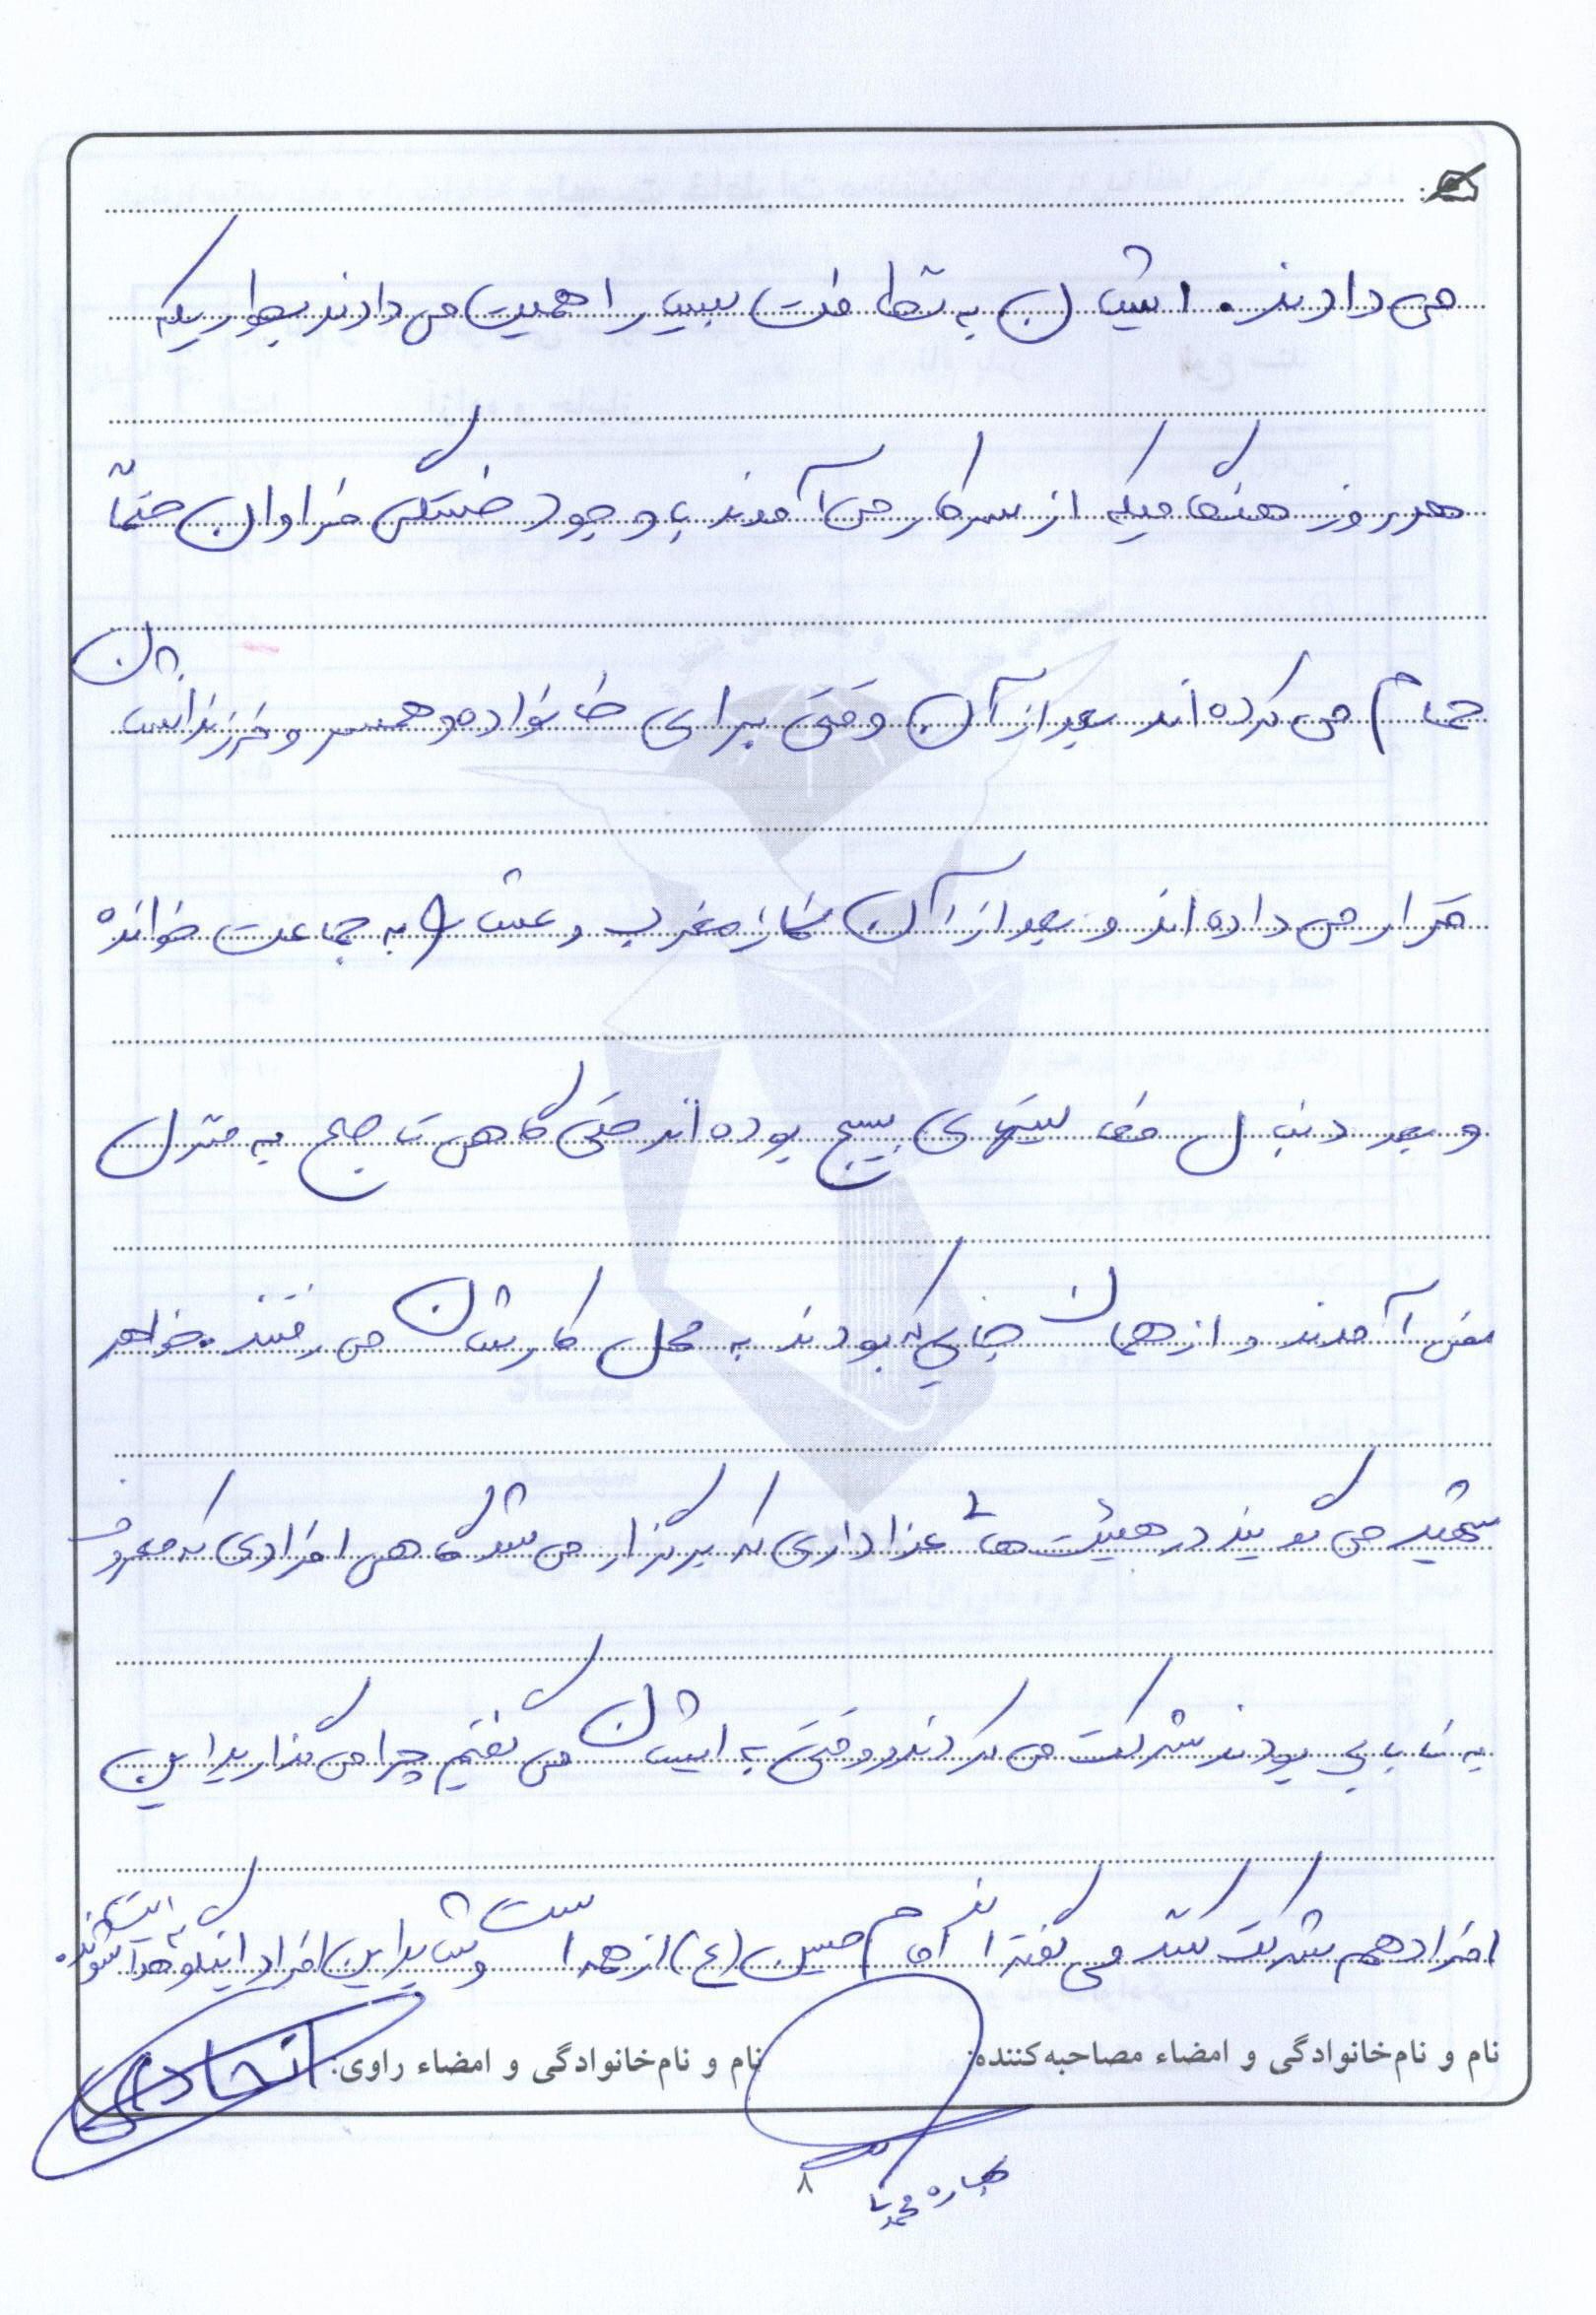 می دادند. ایشان به نظافت بسیار اهمیت می دادند بطوریکه
هر روز هنگامیکه از سر کار می آمدند با وجود خستگی فراوان حتماً
حمام می کرده اند بعد از آن وقتی برای خانواده و همسر و فرزندانشان
قرار می داده اند و بعد از آن نماز مغرب و عشا را به جماعت خوانده
و بعد دنبال فعالیتهای بسیج بوده اند حتی گاهی تا صبح به منزل
نمی آمدند و از همان جایی که بودند به محل کارشان می رفتند. خواهر
شهید می گویند در هیئت های عزاداری که برگزار می شد گاهی افرادی که معروف
به نابابی بودند شرکت می کردند و وقتی به ایشان می گفتیم چرا می گذارید این
افراد هم شرکت کنند می گفتند امام حسین (ع) از همه است و شاید این افراد اینگونه هدایت شوند.
نام و نام‌خانوادگی و امضاء مصاحبه‌کننده:
نام و نام‌خانوادگی و امضاء راوی: اتحادی
۸